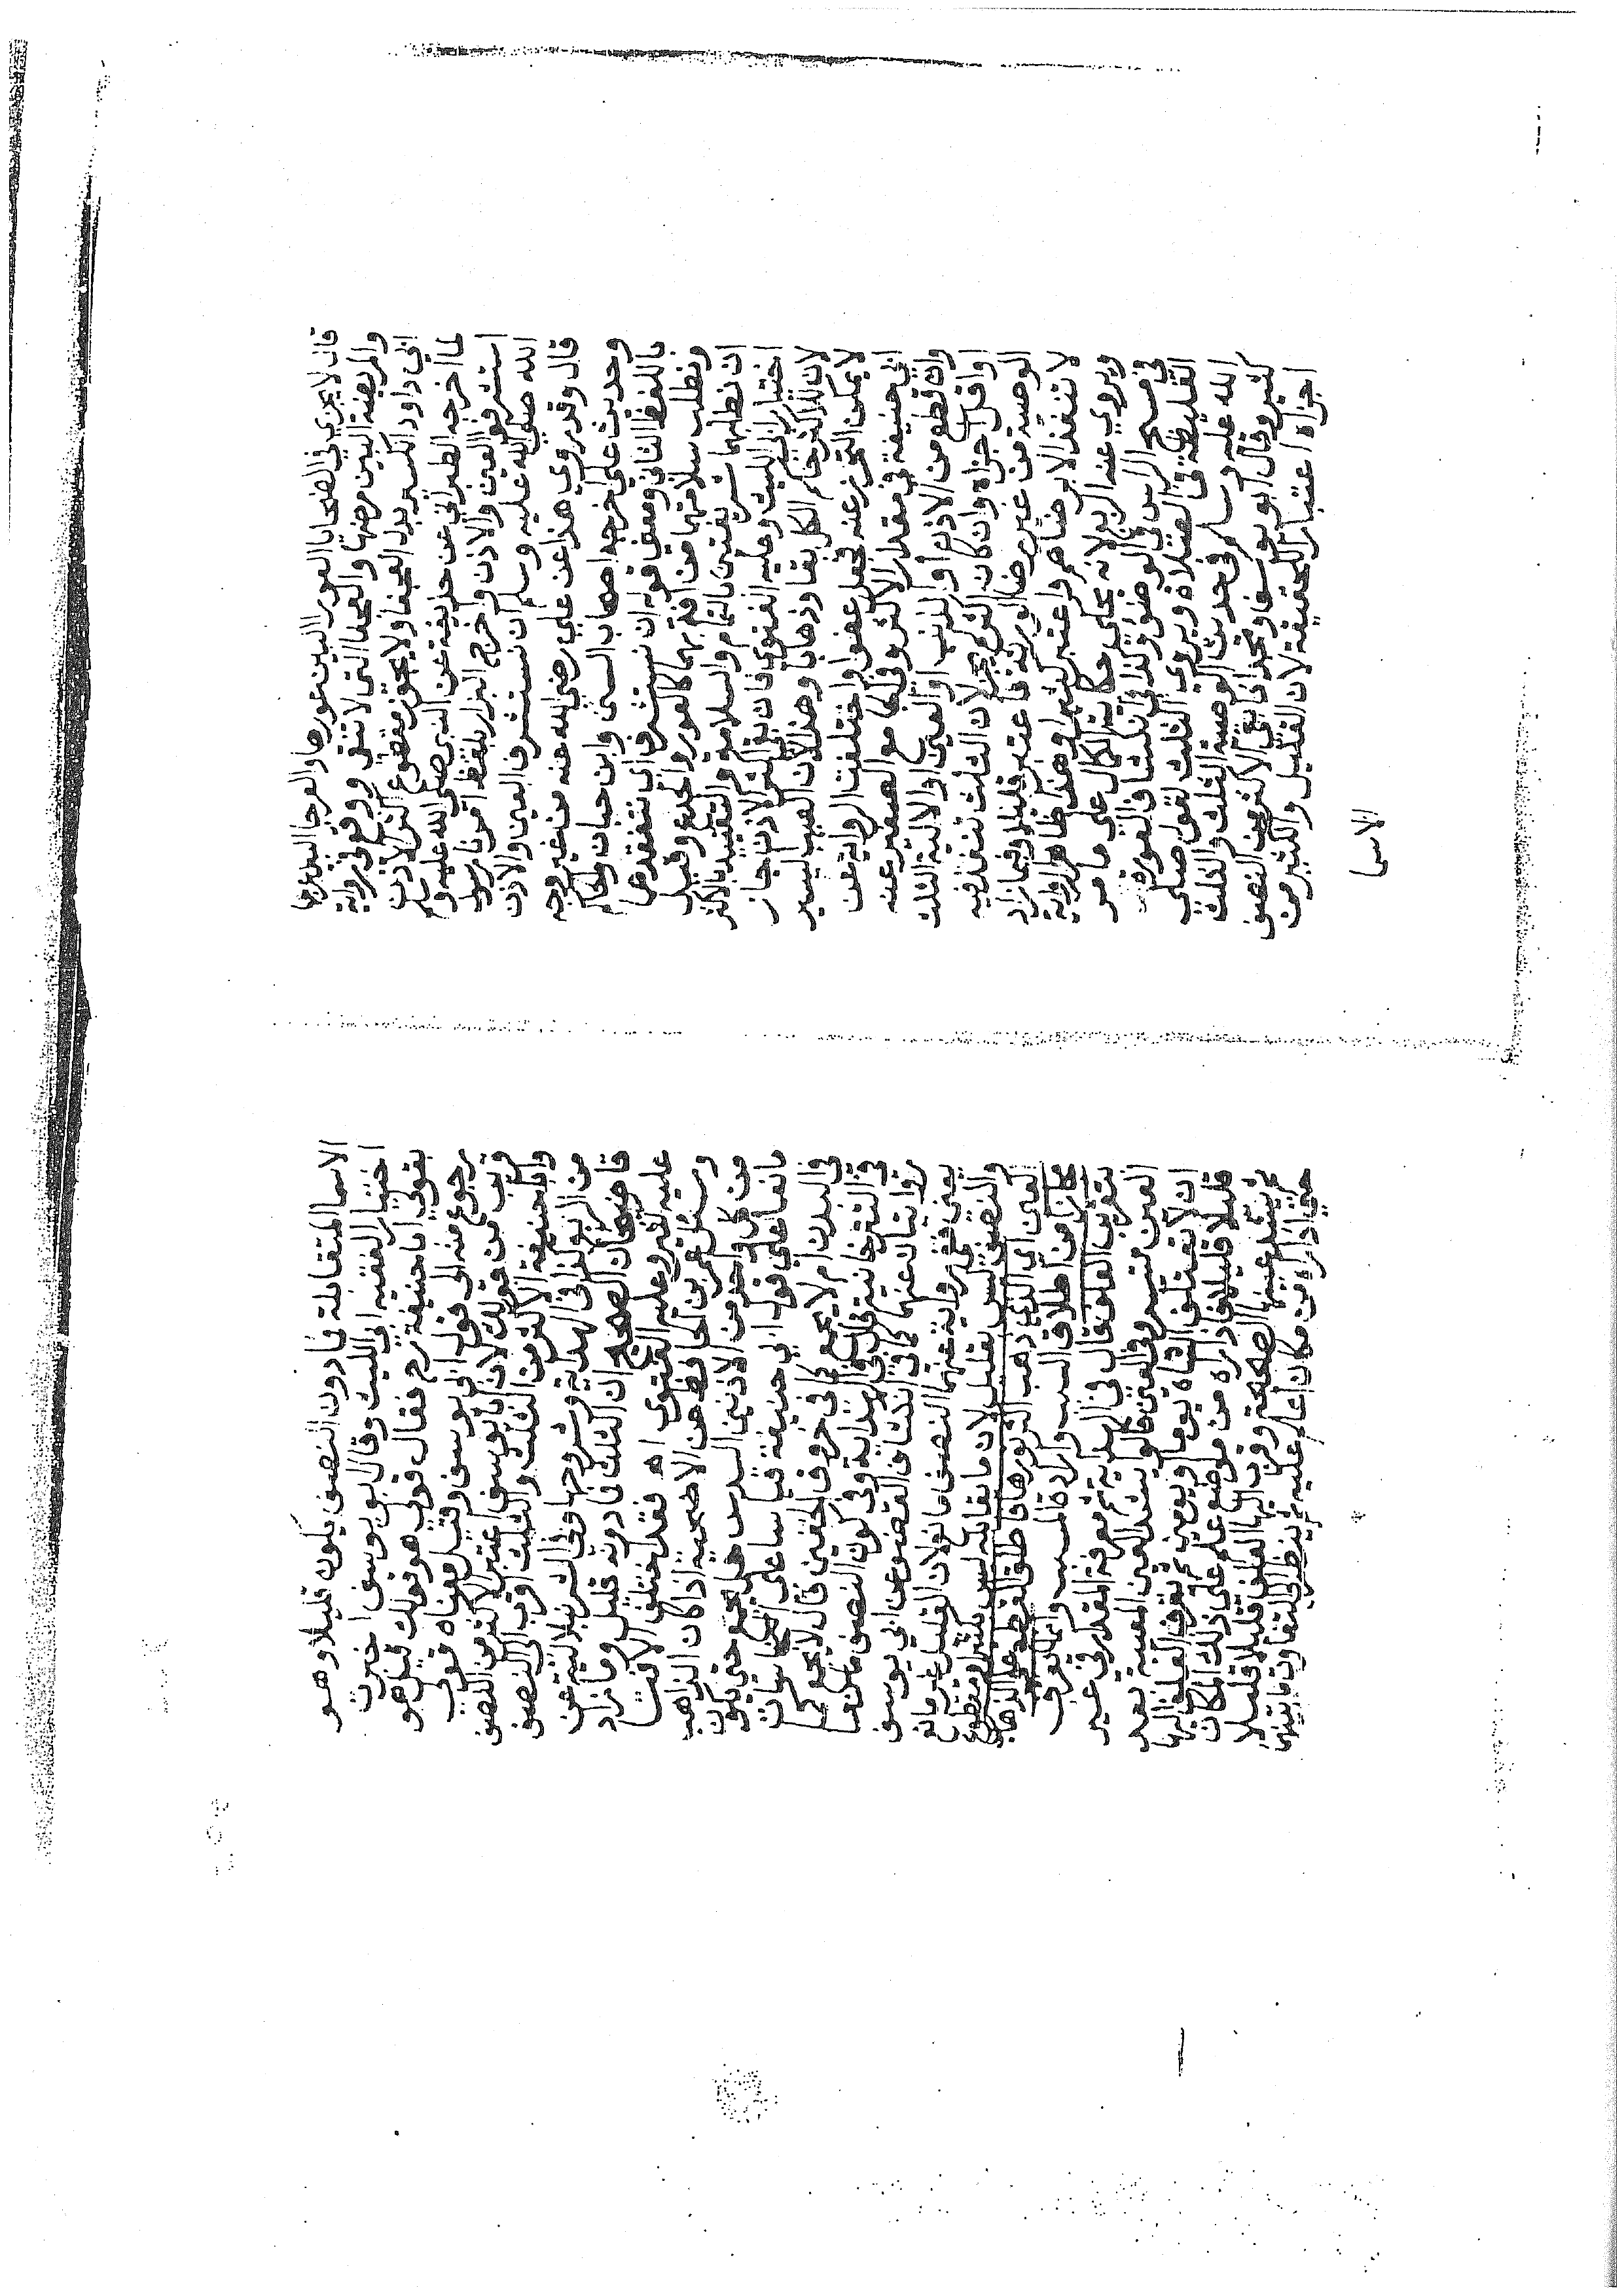 قال لا يجزي في الضحايا العورا البين عورها والعرجا البين عرجها
والمريضة البين مرضها والعجفا التي لا تنقى ووقع في رواية
ابي داود الكسير بدل العجفا ولا يجوز مقطوع اكثر الاذن
لما اخرجه الطبراني عن حذيفة عن النبي صلى الله عليه وسلم
استشرفوا العين والاذن واخرج البزار بلفظ امرنا رسول
الله صلى الله عليه وسلم ان نستشرف العين والاذن
قال وقد روي هذا عن علي رضي الله عنه من غير وجه
وحديث علي اخرجه اصحاب السنن وابن حبان والحاكم
باللفظ الثاني ومعنى قوله ان نستشرف اي نتفقدها
ونطلب سلامتهما من افة بهما كالعور والجدع وقيل
ان نطلبهما شريفتين بالتمام والسلامة والتقييد بالاكثر
اختيار ابي الليث وعليه الفتوى فان بقي اكثر الاذن جاز
لان للاكثر حكم الكل بقا وذهابا وهذا لان العيب اليسير
لا يمكن التحرز عنه فجعل عفوا واختلفت الرواية عن
ابي حنيفة في مقدار الاكثر وفي الجامع الصغير عنه
وان قطع من الاذن او الذنب او العين او الالية الثلث
او اقل اجزاه وان كان اكثر لم يجز لان الثلث تنفذ فيه
الوصية من غير رضا الورثة فاعتبر قليلا وفيما زاد
لا تنفذ الا برضاهم واعتبر كثيرا وهذا ظاهر الرواية
ويروي عنه الربع لانه يحكي حكاية الكمال علي ما مر
في مسح الراس في الوضو وكذا في انكشاف العورة
الغليظة في الصلاة ويروي الثلث لقوله صلى
الله عليه وسلم في حديث الوصية الثلث والثلث
كثير وقال ابو يوسف ومحمد اذا بقي الاكثر من النصف
اجزاه اعتبارا للحقيقة لان القليل والكثير من
الاسما
الاسما المتقابلة فما دون النصف يكون قليلا وهو
اختيار الفقيه ابي الليث وقال ابو يوسف اخبرت
بقولي ابا حنيفة رح فقال قولي هو قولك قيل هو
رجوع منه الى قول ابي يوسف وقيل معناه قولي
قريب من قولك لان ابا يوسف اعتبر الاكثر من النصف
وابا حنيفة الاكثر من الثلث والثلث اقرب الى النصف
من الربع وكذا في الهداية وشروحها وفي الشرنبلالية عن
قاضيخان الصحيح ان الثلث فما دونه قليل وما زاد
عليه كثير وعليه الفتوى اه فقد اختلف الافتا
وسئل عمر بن الحافظ عن الاضحية اذا كان الذاهب
من كل واحد من الاذنين السدس هل يجمع حتى يكون
مانعا علي قول ابي حنيفة قياسا على النجاسات
في البدن ام لا يجمع كما في خروق الخفين قال لا يجمع كما
في التترخانية قال في الهداية وفي كون النصف مانعا
روايتان عنهما كما في انكشاف العضو عن ابي يوسف
يعني في رواية عنهما النصف مانع لان القليل غير مانع
والنصف ليس بقليل لان ما يقابله ليس بكثير او مقطوع
العين اي الذي ذهب اكثر نورها فاطلق القطع على الذهاب
مجازا من اطلاق السبب وارادة المسبب وانما يعرف
بتقريب العلف قال في الهداية ثم معرفة المقدار في غير
العين متيسر وفي العين قالوا يشد العين المعيبة بعد
ان لا تعتلف الشاة يوما او يومين ثم يقرب العلف اليها
قليلا قليلا فاذا راته من موضع علم على ذلك المكان
ثم يشد عينها الصحيحة وقرب اليها العلف قليلا قليلا
حتى اذا راته من مكان اعلم عليه ثم ينظر الى التفاوت ما بينهما